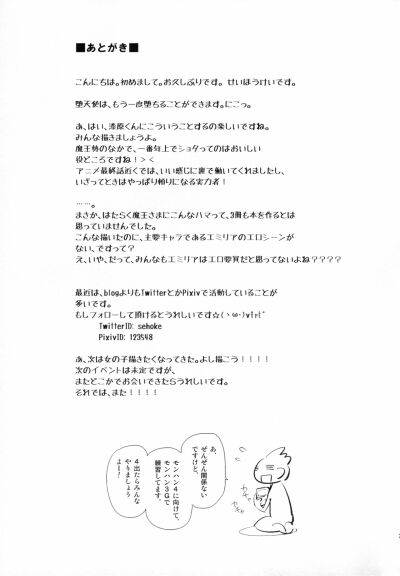 ■あとがき■
こんにちは。初めまして。お久しぶりです。せいほうけいです。
堕天使は、もう一度堕ちることができます。にこっ。
あ、はい、漆原くんにこういうことするの楽しいですね。
みんな描きましょうよ。
魔王勢のなかで、一番年上でショタってのはおいしい
役どころですね！＞＜
アニメ最終話近くでは、いい感じに裏で働いてくれましたし、
いざってときはやっぱり頼りになる実力者！
……。
まさか、はたらく魔王さまにこんなハマって、3冊も本を作るとは
思っていませんでした。
こんな描いたのに、主要キャラであるエミリアのエロシーンが
ない、ですって？
え、いや、だって、みんなもエミリアはエロ要員だと思ってないよね？？？？
最近は、blogよりもTwitterとかPixivで活動していることが
多いです。
もしフォローして頂けるとうれしいです☆(ヽω・)v
TwitterID: sehoke
PixivID: 123548
あ、次は女の子描きたくなってきた。よし描こう！！！！
次のイベントは未定ですが、
またどこかでお会いできたらうれしいです。
それでは、また！！！！
あ、
ぜんぜん関係ない
ですけど、
モンハン4に向けて、
モンハン3Gで
練習してます。
4出たらみんな
やりましょう
よー！